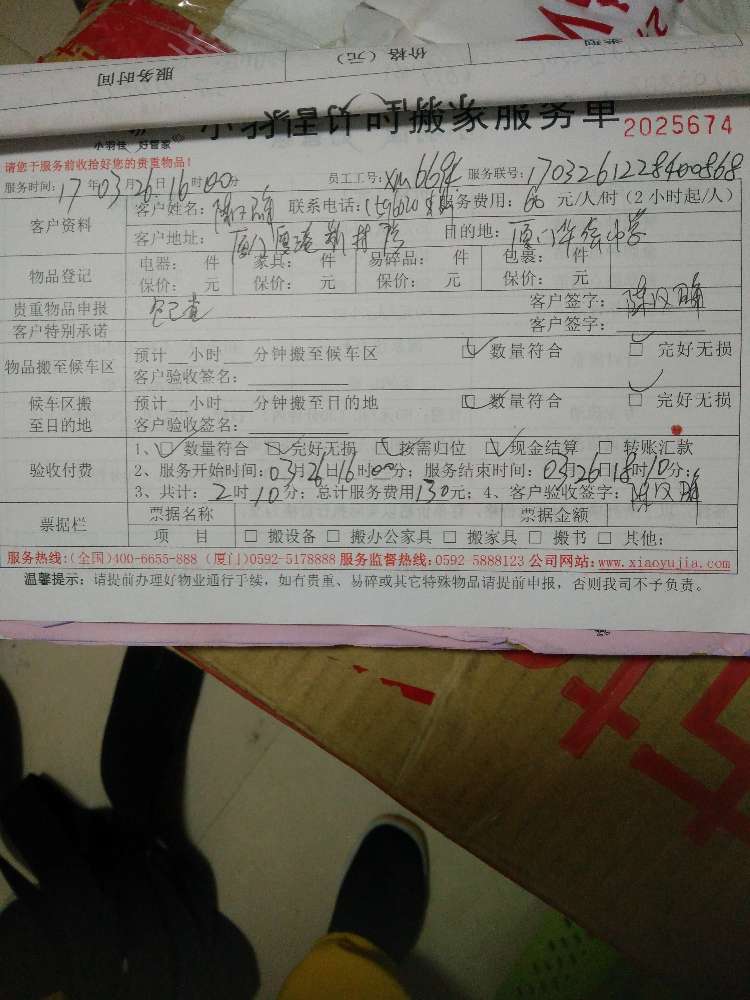 服务时间 价格(元)
小羽佳 好管家
小羽佳计时搬家服务单 2025674
请您于服务前收拾好您的贵重物品!
服务时间:17年03月26日16时00分 员工工号: 服务联号:1703261228400868
客户资料 客户姓名: 联系电话: 服务费用:60元/人/时(2小时起/人)
客户地址: 目的地:
物品登记 电器: 件 家具: 件 易碎品: 件 包裹: 件
保价: 元 保价: 元 保价: 元 保价: 元
贵重物品申报 客户签字:
客户特别承诺 客户签字:
物品搬至候车区 预计__小时___分钟搬至候车区 □数量符合 □完好无损
客户验收签名:
候车区搬至目的地 预计__小时___分钟搬至目的地 □数量符合 □完好无损
客户验收签名:
验收付费 1、□数量符合 □完好无损 □按需归位 □现金结算 □转账汇款
2、服务开始时间:03月26日16时00分;服务结束时间:03月26日18时10分;
3、共计:2时10分;总计服务费用130元;4、客户验收签字:
票据栏 票据名称 票据金额
项 目 □搬设备 □搬办公家具 □搬家具 □搬书 □其他:
服务热线:(全国)400-6655-888 (厦门)0592-5178888 服务监督热线:0592-5888123 公司网站:www.xiaoyujia.com
温馨提示:请提前办理好物业通行手续,如有贵重、易碎或其它特殊物品请提前申报,否则我司不予负责。